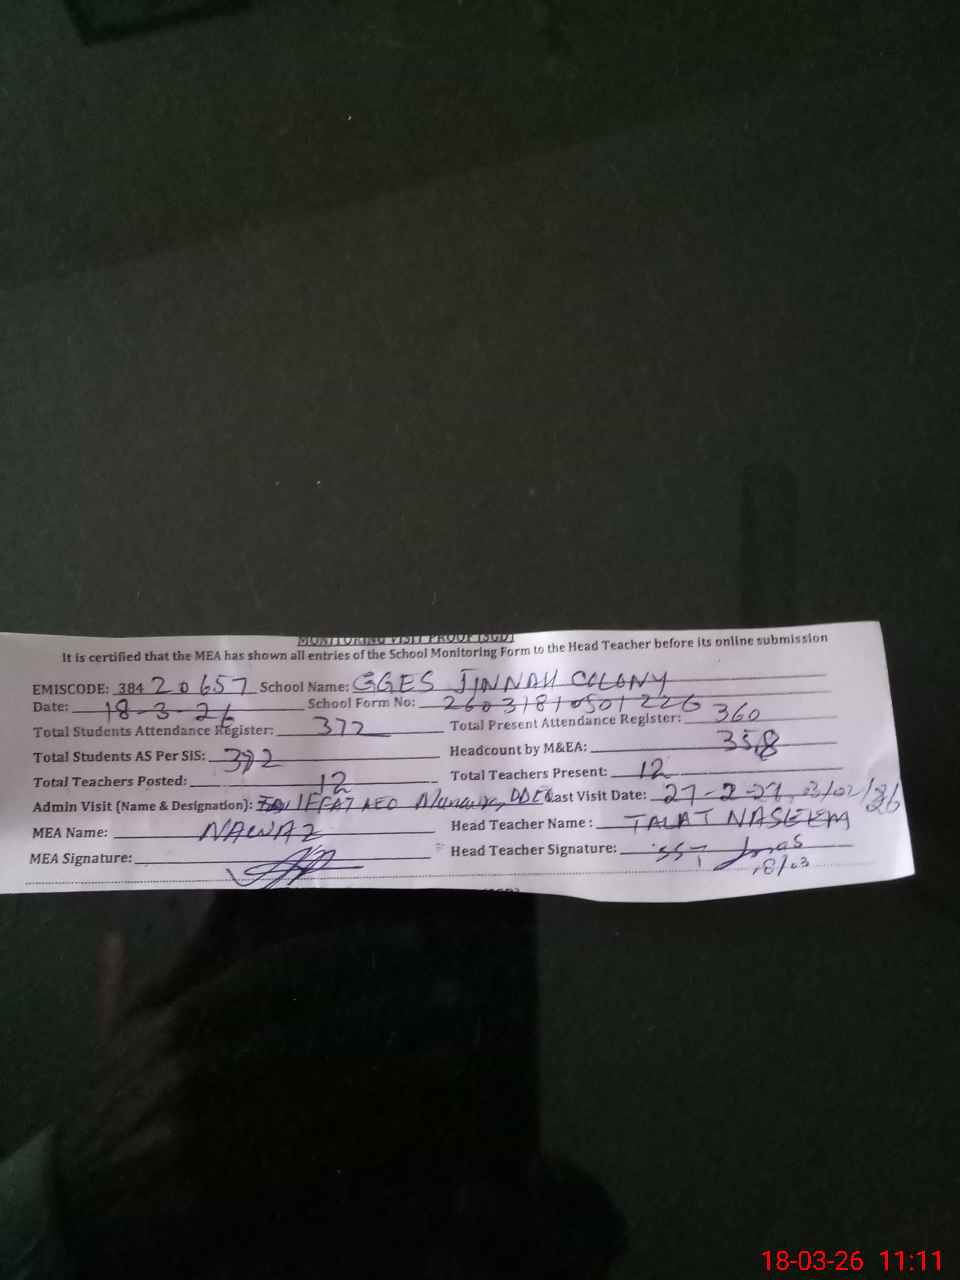 MONITORING VISIT PROOF (SGD)
It is certified that the MEA has shown all entries of the School Monitoring Form to the Head Teacher before its online submission
EMISCODE: 384 20657 School Name: GGES JINNAH COLONY
Date: 18-3-26 School Form No: 26031810501226
Total Students Attendance Register: 372 Total Present Attendance Register: 360
Total Students AS Per SIS: 372 Headcount by M&EA: 358
Total Teachers Posted: 12 Total Teachers Present: 12
Admin Visit (Name & Designation): IFFAT AEO Last Visit Date: 27-2-
MEA Name: NAWAZ Head Teacher Name: TALAT NASEEM
MEA Signature: Head Teacher Signature: SST
18/03
18-03-26 11:11